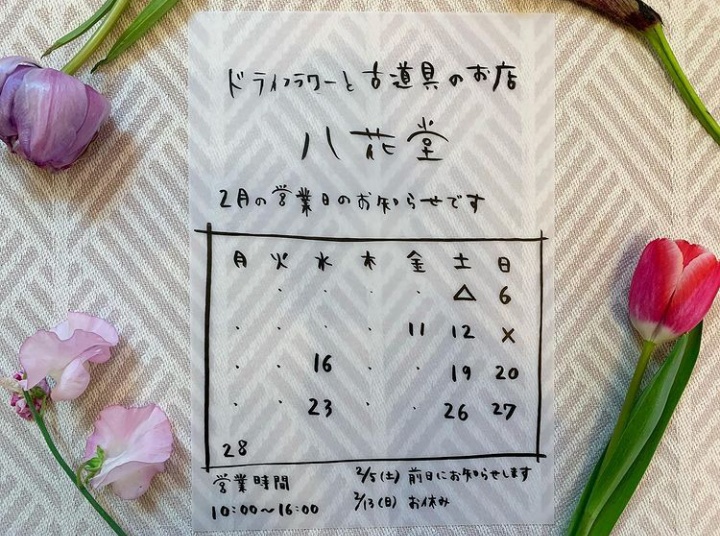 ドライフラワーと古道具のお店
八花堂
2月の営業日のお知らせです
月 火 水 木 金 土 日
・ ・ ・ ・ △ 6
・ ・ ・ ・ 11 12 ×
・ ・ 16 ・ 19 20
・ ・ 23 ・ 26 27
28
営業時間
10:00〜16:00
2/5(土) 前日にお知らせします
2/13(日) お休み